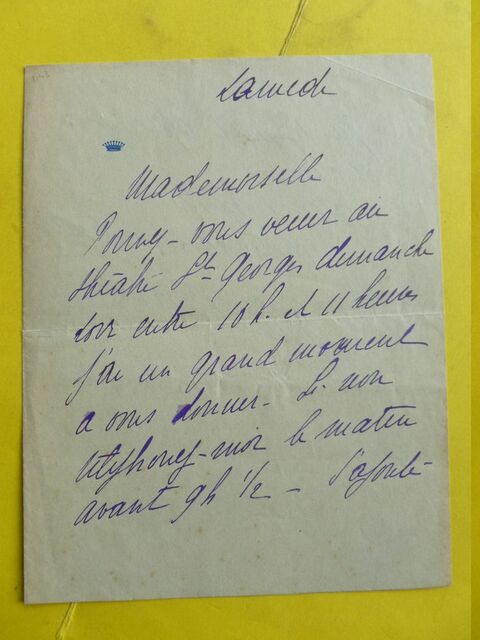 Samedi
Mademoiselle
Pouvez-vous venir au
théâtre St Georges dimanche
soir entre 10 h. et 11 heures
j'ai un grand moment
a vous donner - Si non
téléphonez-moi le matin
avant 9h 1/2 - J'ajoute